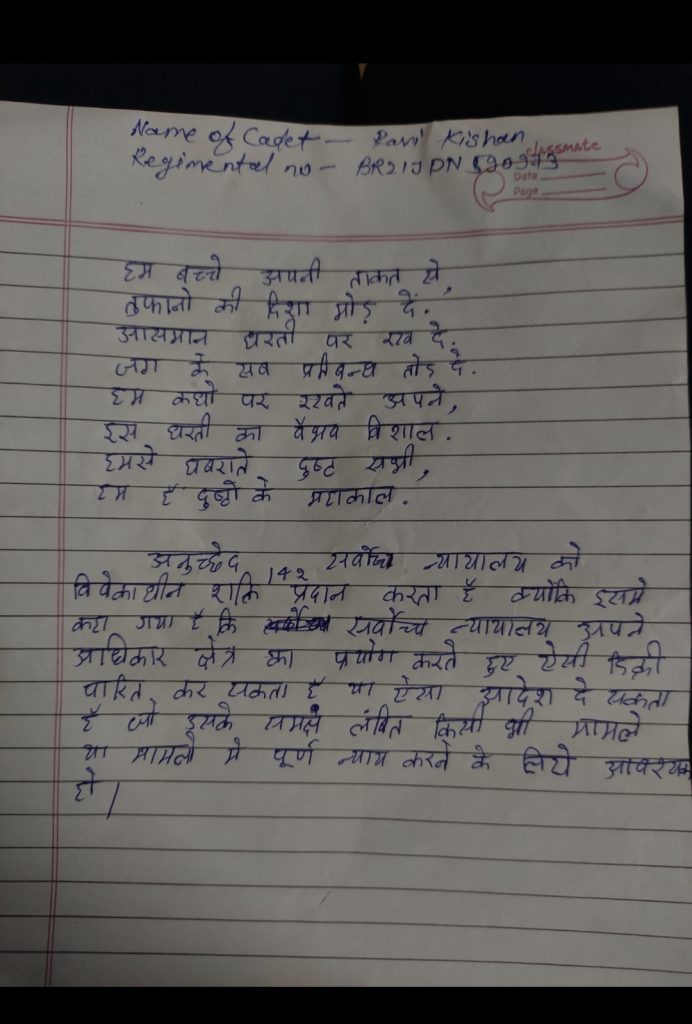 Name of Cadet — Ravi Kishan
classmate
Regimental no —
Date
Page
हम बच्चे अपनी ताकत से,
तुफानो की दिशा मोड़ दें.
आसमान धरती पर रख दे.
जग के सब प्रतिबन्ध तोड़ दे.
हम कधो पर रखते अपने,
इस धरती का वैभव विशाल.
हमसे घबराते दुष्ट सभी,
हम है दुष्टो के महाकाल.
अनुच्छेद 142 सर्वोच्च न्यायालय को
विवेकाधीन शक्ति प्रदान करता है क्योंकि इसमे
कहा गया है कि सर्वोच्च न्यायालय अपने
अधिकार क्षेत्र का प्रयोग करते हुए ऐसी डिक्री
पारित कर सकता है या ऐसा आदेश दे सकता
है जो इसके समक्ष लंबित किसी भी मामले
या मामलो मे पूर्ण न्याय करने के लिये आवश्यक
हो |